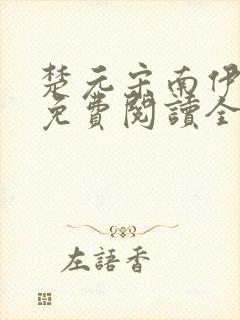 楚元宗南伊
免費閱讀全
左語香